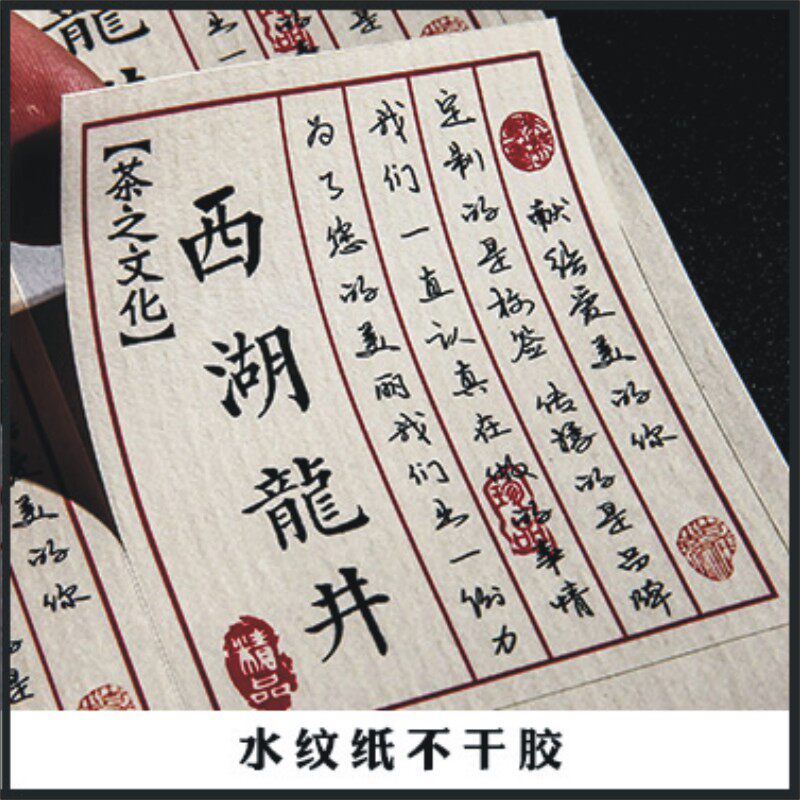 献给爱美的你
定制的是标签 传播的是品牌
我们一直认真在做的事情
珍品
为了您的美丽我们出一份力
西湖龍井
精品
【茶之文化】
水纹纸不干胶